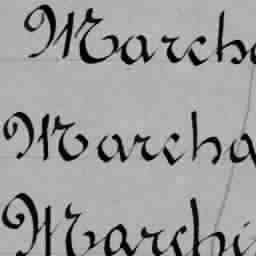 Marcha
Marcha
Marchi